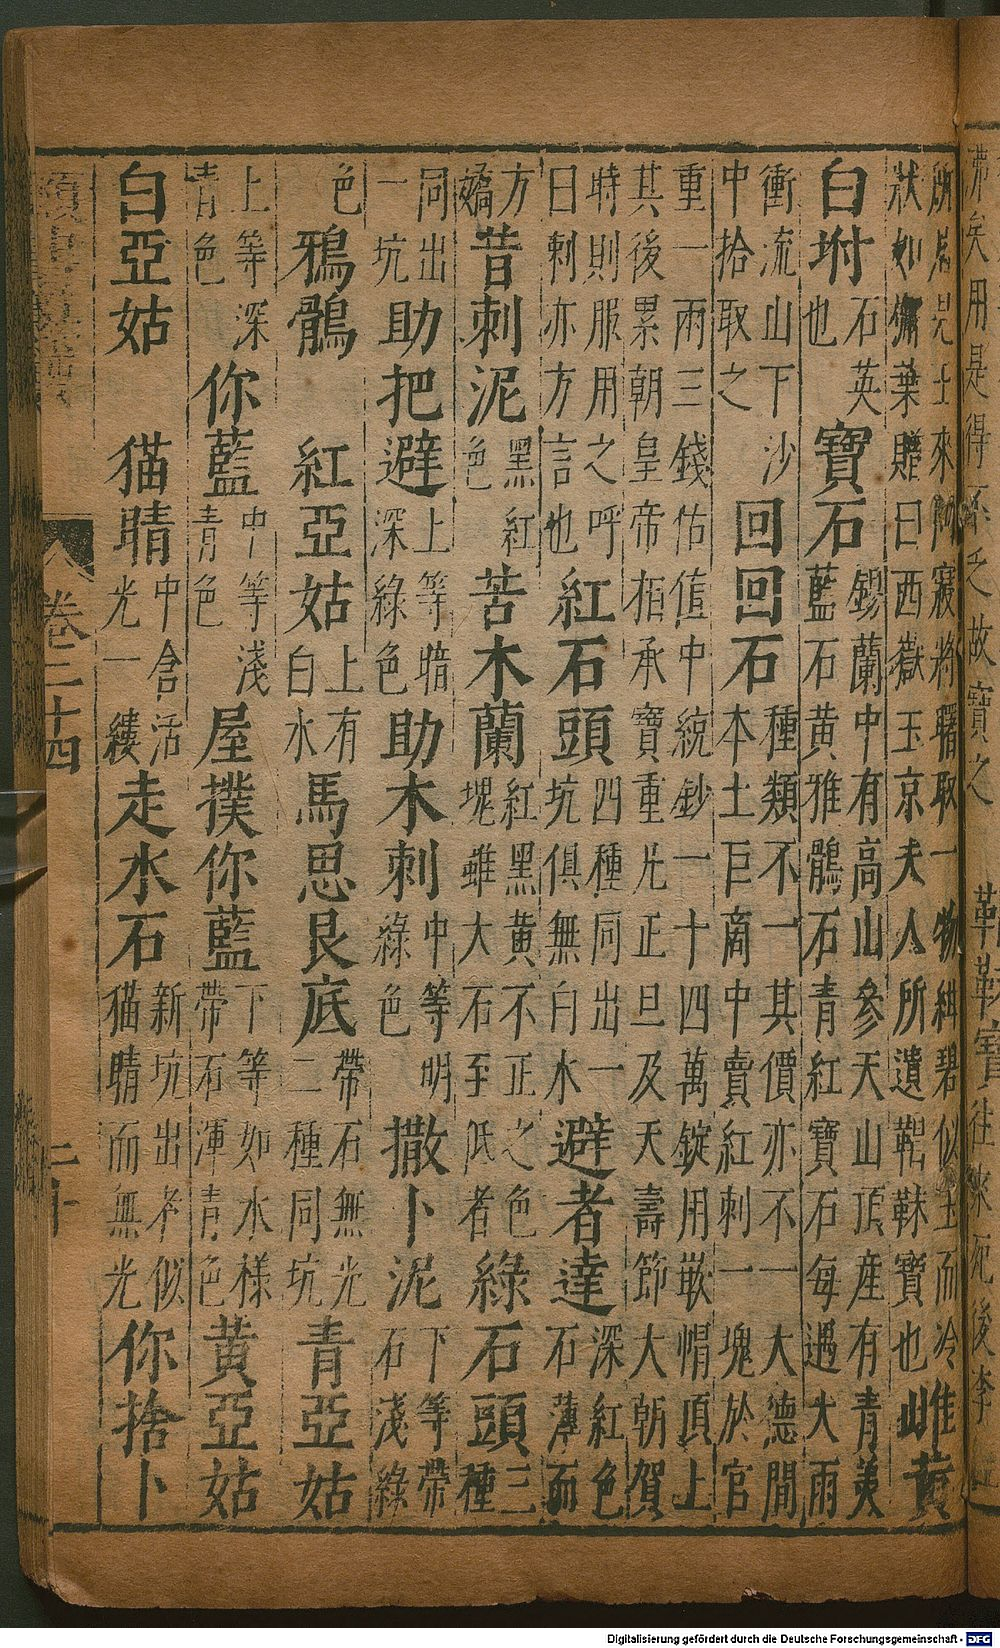 沸矣用是得
之故寶之
靺鞨寶
往來死後李
所居見士來叩寢將曙取一物紺碧似玉而冷
狀如葉贈曰西嶽玉京夫人所遺靺鞨寶也
雌黃
白坿
石英
也
寶石
錫蘭中有高山參天山頂產有青美
藍石黃雅鶻石青紅寶石每遇大雨
衝流山下沙
中拾取之
回回石
種類不一其價亦不一大德間
本土巨商中賣紅刺一塊於官
重一兩三錢估值中統鈔一十四萬錠用嵌帽頂上
其後累朝皇帝相承寶重凡正旦及天壽節大朝賀
時則服用之呼
曰剌亦方言也
紅石頭
四種同出一
坑俱無白水
避者達
深紅色
石薄而
方
嬌
昔刺泥
黑紅
色
苦木蘭
紅黑黃不正之色
塊雖大石至低者
綠石頭
三
種
同出
一坑
助把避
上等暗
深綠色
助木刺
中等明
綠色
撒卜泥
下等帶
石淺綠
色
鴉鶻
紅亞姑
上有
白水
馬思艮底
帶石無光
二種同坑
青亞姑
上等深
青色
你藍
中等淺
青色
屋撲你藍
下等如水樣
帶石渾青色
黃亞姑
白亞姑
猫睛
中含活
光一縷
走水石
新坑出者似
猫睛而無光
你捨卜
卷三十四
二十
Digitalisierung gefördert durch die Deutsche Forschungsgemeinschaft - DFG